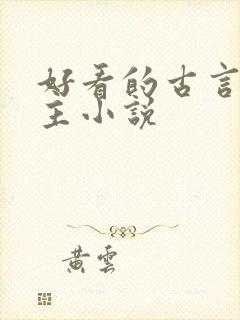 好看的古言
主小说
黄云